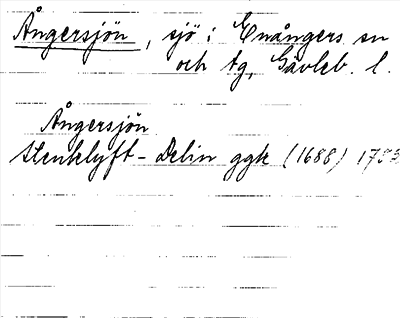 Ångersjön, sjö i Enångers sn
och tg, Gävleb. l.
Ångersjön
Stenklyft - Delin ggk (1688) 175